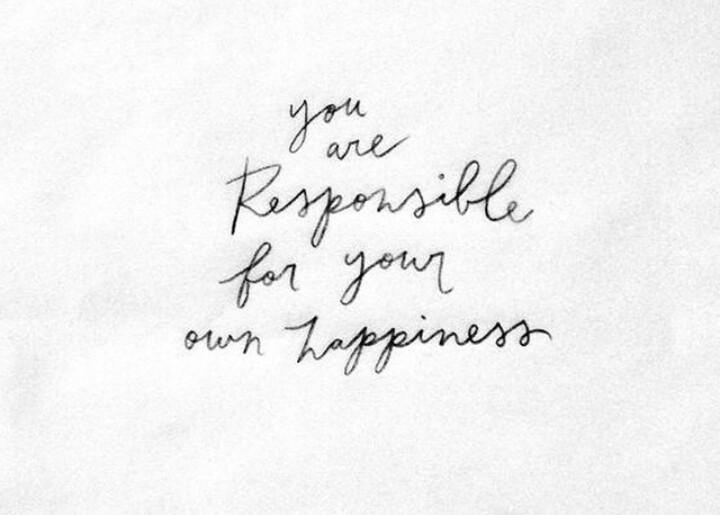 you
are
Responsible
for your
own happiness